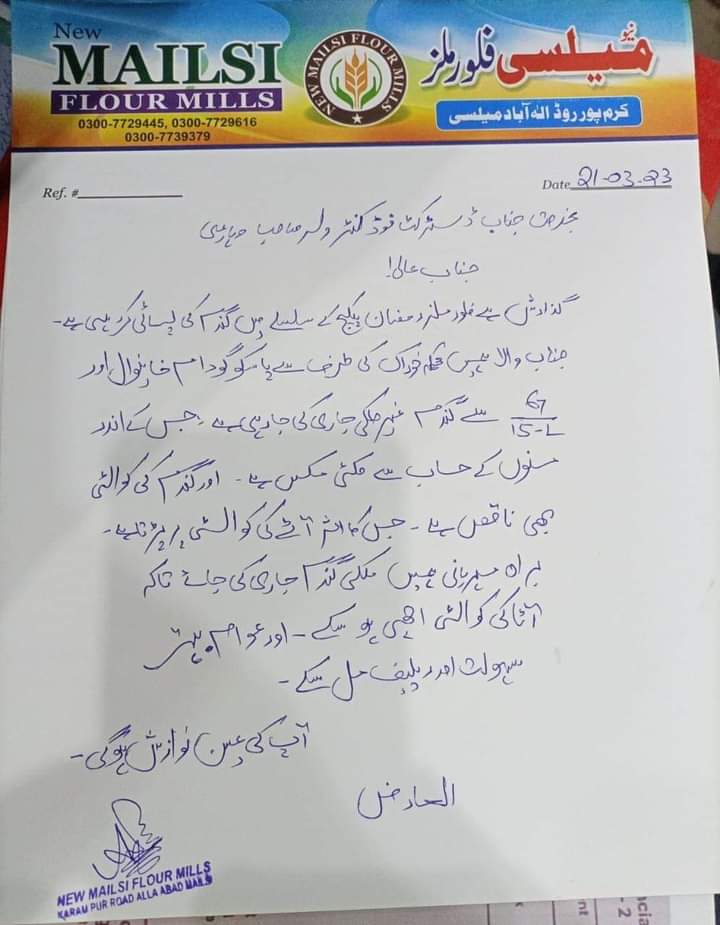 New
MAILSI
FLOUR MILLS
0300-7729445, 0300-7729616
0300-7739379
NEW MAILSI FLOUR MILLS
نیو میلسی فلور ملز
کرم پور روڈ الہ آباد میلسی
Ref. #
Date 21-03-23
بخدمت جناب ڈسٹرکٹ فوڈ کنٹرولر صاحب وہاڑی
جناب عالی!
گذارش ہے فلور ملز رمضان پیکج کے سلسلے میں گندم کی پسائی کر رہی ہے۔
جناب والا ہمیں محکمہ خوراک کی طرف سے پاسکو گودام خانیوال اور
67/15-L سے گندم غیر ملکی جاری کی جا رہی ہے۔ جس کے اندر
منوں کے حساب سے مٹی مکس ہے۔ اور گندم کی کوالٹی
بھی ناقص ہے۔ جس کا اثر آٹے کی کوالٹی پر پڑتا ہے۔
براہ مہربانی ہمیں ملکی گندم جاری کی جائے تاکہ
آٹا کی کوالٹی اچھی ہو سکے۔ اور عوام بہتر
سہولت اور ریلیف مل سکے۔
آپ کی عین نوازش ہوگی۔
العارض
NEW MAILSI FLOUR MILLS
KARAM PUR ROAD ALLA ABAD MAILSI